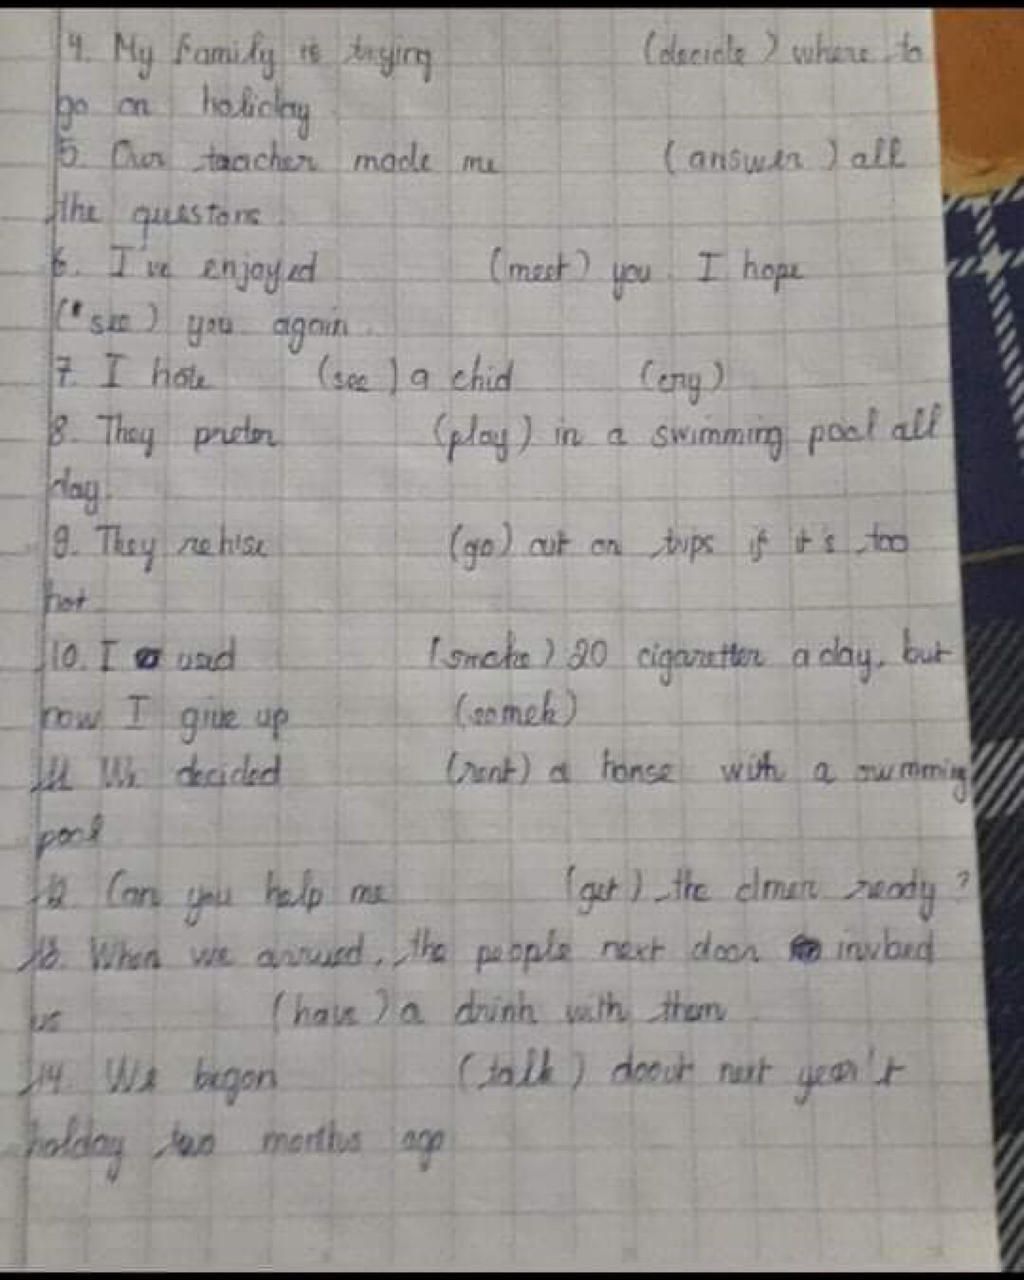 4. My Family is trying (decide) where to
go on holiday
5. Our teacher made me (answer) all
the questons
6. I've enjoyed (meet) you. I hope
(see) you again.
7. I hate (see) a chid (cry)
8. They prefer (play) in a swimming pool all
day.
9. They rehise (go) out on trips if it's too
hot
10. I used (smoke) 20 cigaretter a day, but
now I give up (somek)
11 We decided (rent) a honse with a swmming
pool
12. Can you help me (get) the dmer ready?
13. When we arrived, the people next door invbed
us (have) a drink with them
14. We began (talk) doout next year't
holday two months ago